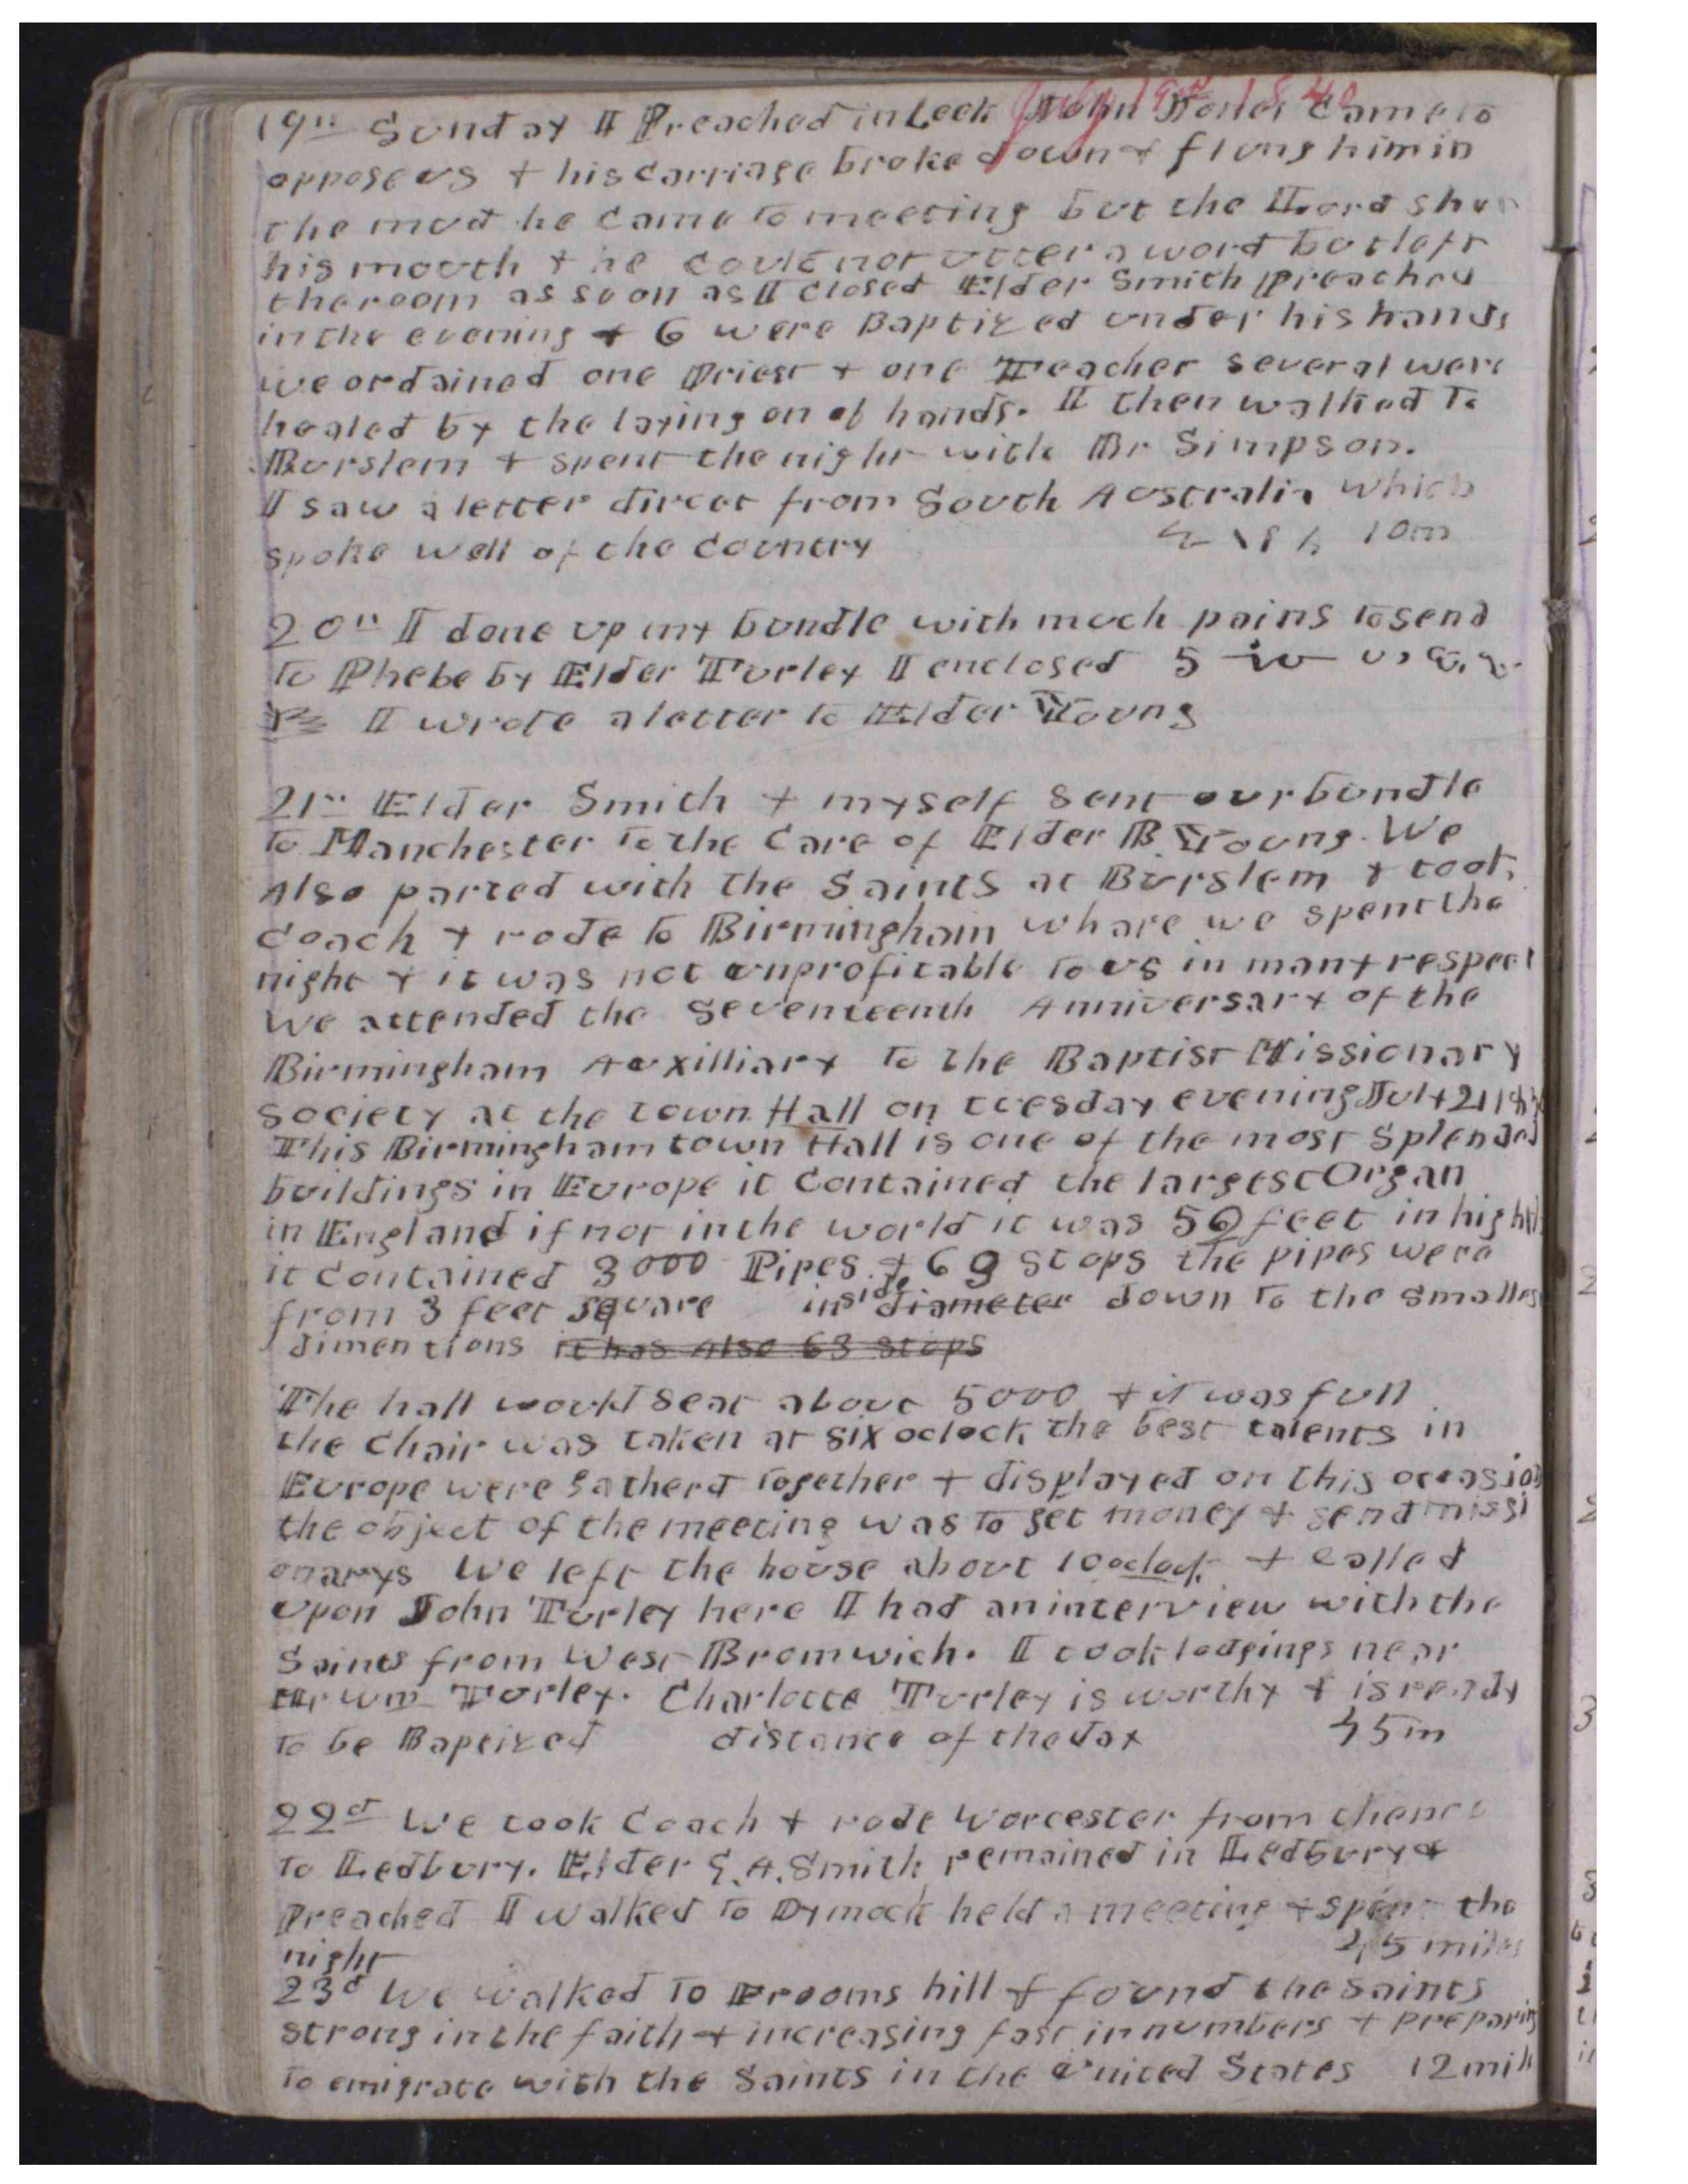 July 19th 1840
19th Sunday I Preached in Leek John Jones Came to
oppose us + his carriage broke down + flung him in
the mud he came to meeting but the Lord shut
his mouth + he could not utter a word but left
the room as soon as I closed Elder Smith preached
in the evening + 6 were Baptized under his hands
we ordained one Priest + one Teacher several were
healed by the laying on of hands. I then walked to
Burslem + spent the night with Br Simpson.
I saw a letter direct from South Australia which
spoke well of the country 10m
20th I done up my bundle with much pains to send
to Phebe by Elder Turley I enclosed 5
I wrote a letter to Elder Young
21st Elder Smith + myself sent our bundle
to Manchester to the care of Elder B Young. We
Also parted with the Saints at Burslem + took
coach + rode to Birmingham whare we spent the
night + it was not unprofitable to us in many respect
We attended the Seventeenth Anniversary of the
Birmingham Auxilliary to the Baptist Missionary
Society at the town Hall on tuesday evening July 21
This Birmingham town Hall is one of the most Splended
buildings in Europe it Contained the largest Organ
in England if not in the world it was 50 feet in hight
it contained 3000 Pipes + 63 stops the pipes were
from 3 feet square inside diameter down to the smallest
dimentions it has also 63 stops
The hall would seat about 5000 + it was full
the chair was taken at six oclock the best talents in
Europe were gatherd together + displayed on this occasion
the object of the meeting was to get money + send missi
onarys We left the house about 10 oclock + called
upon John Turley here I had an interview with the
Saints from West Bromwich. I took lodgings near
Mr Wm Turley. Charlotte Turley is worthy + is ready
to be Baptized distance of the day 45 m
22d We took Coach + rode Worcester from thence
to Ledbury. Elder G. A. Smith remained in Ledbury +
Preached I walked to Dymock held a meeting + spent the
night 45 miles
23d We walked to Frooms hill + found the Saints
strong in the faith + increasing fast in numbers + preparing
to emigrate with the Saints in the United States 12 mil